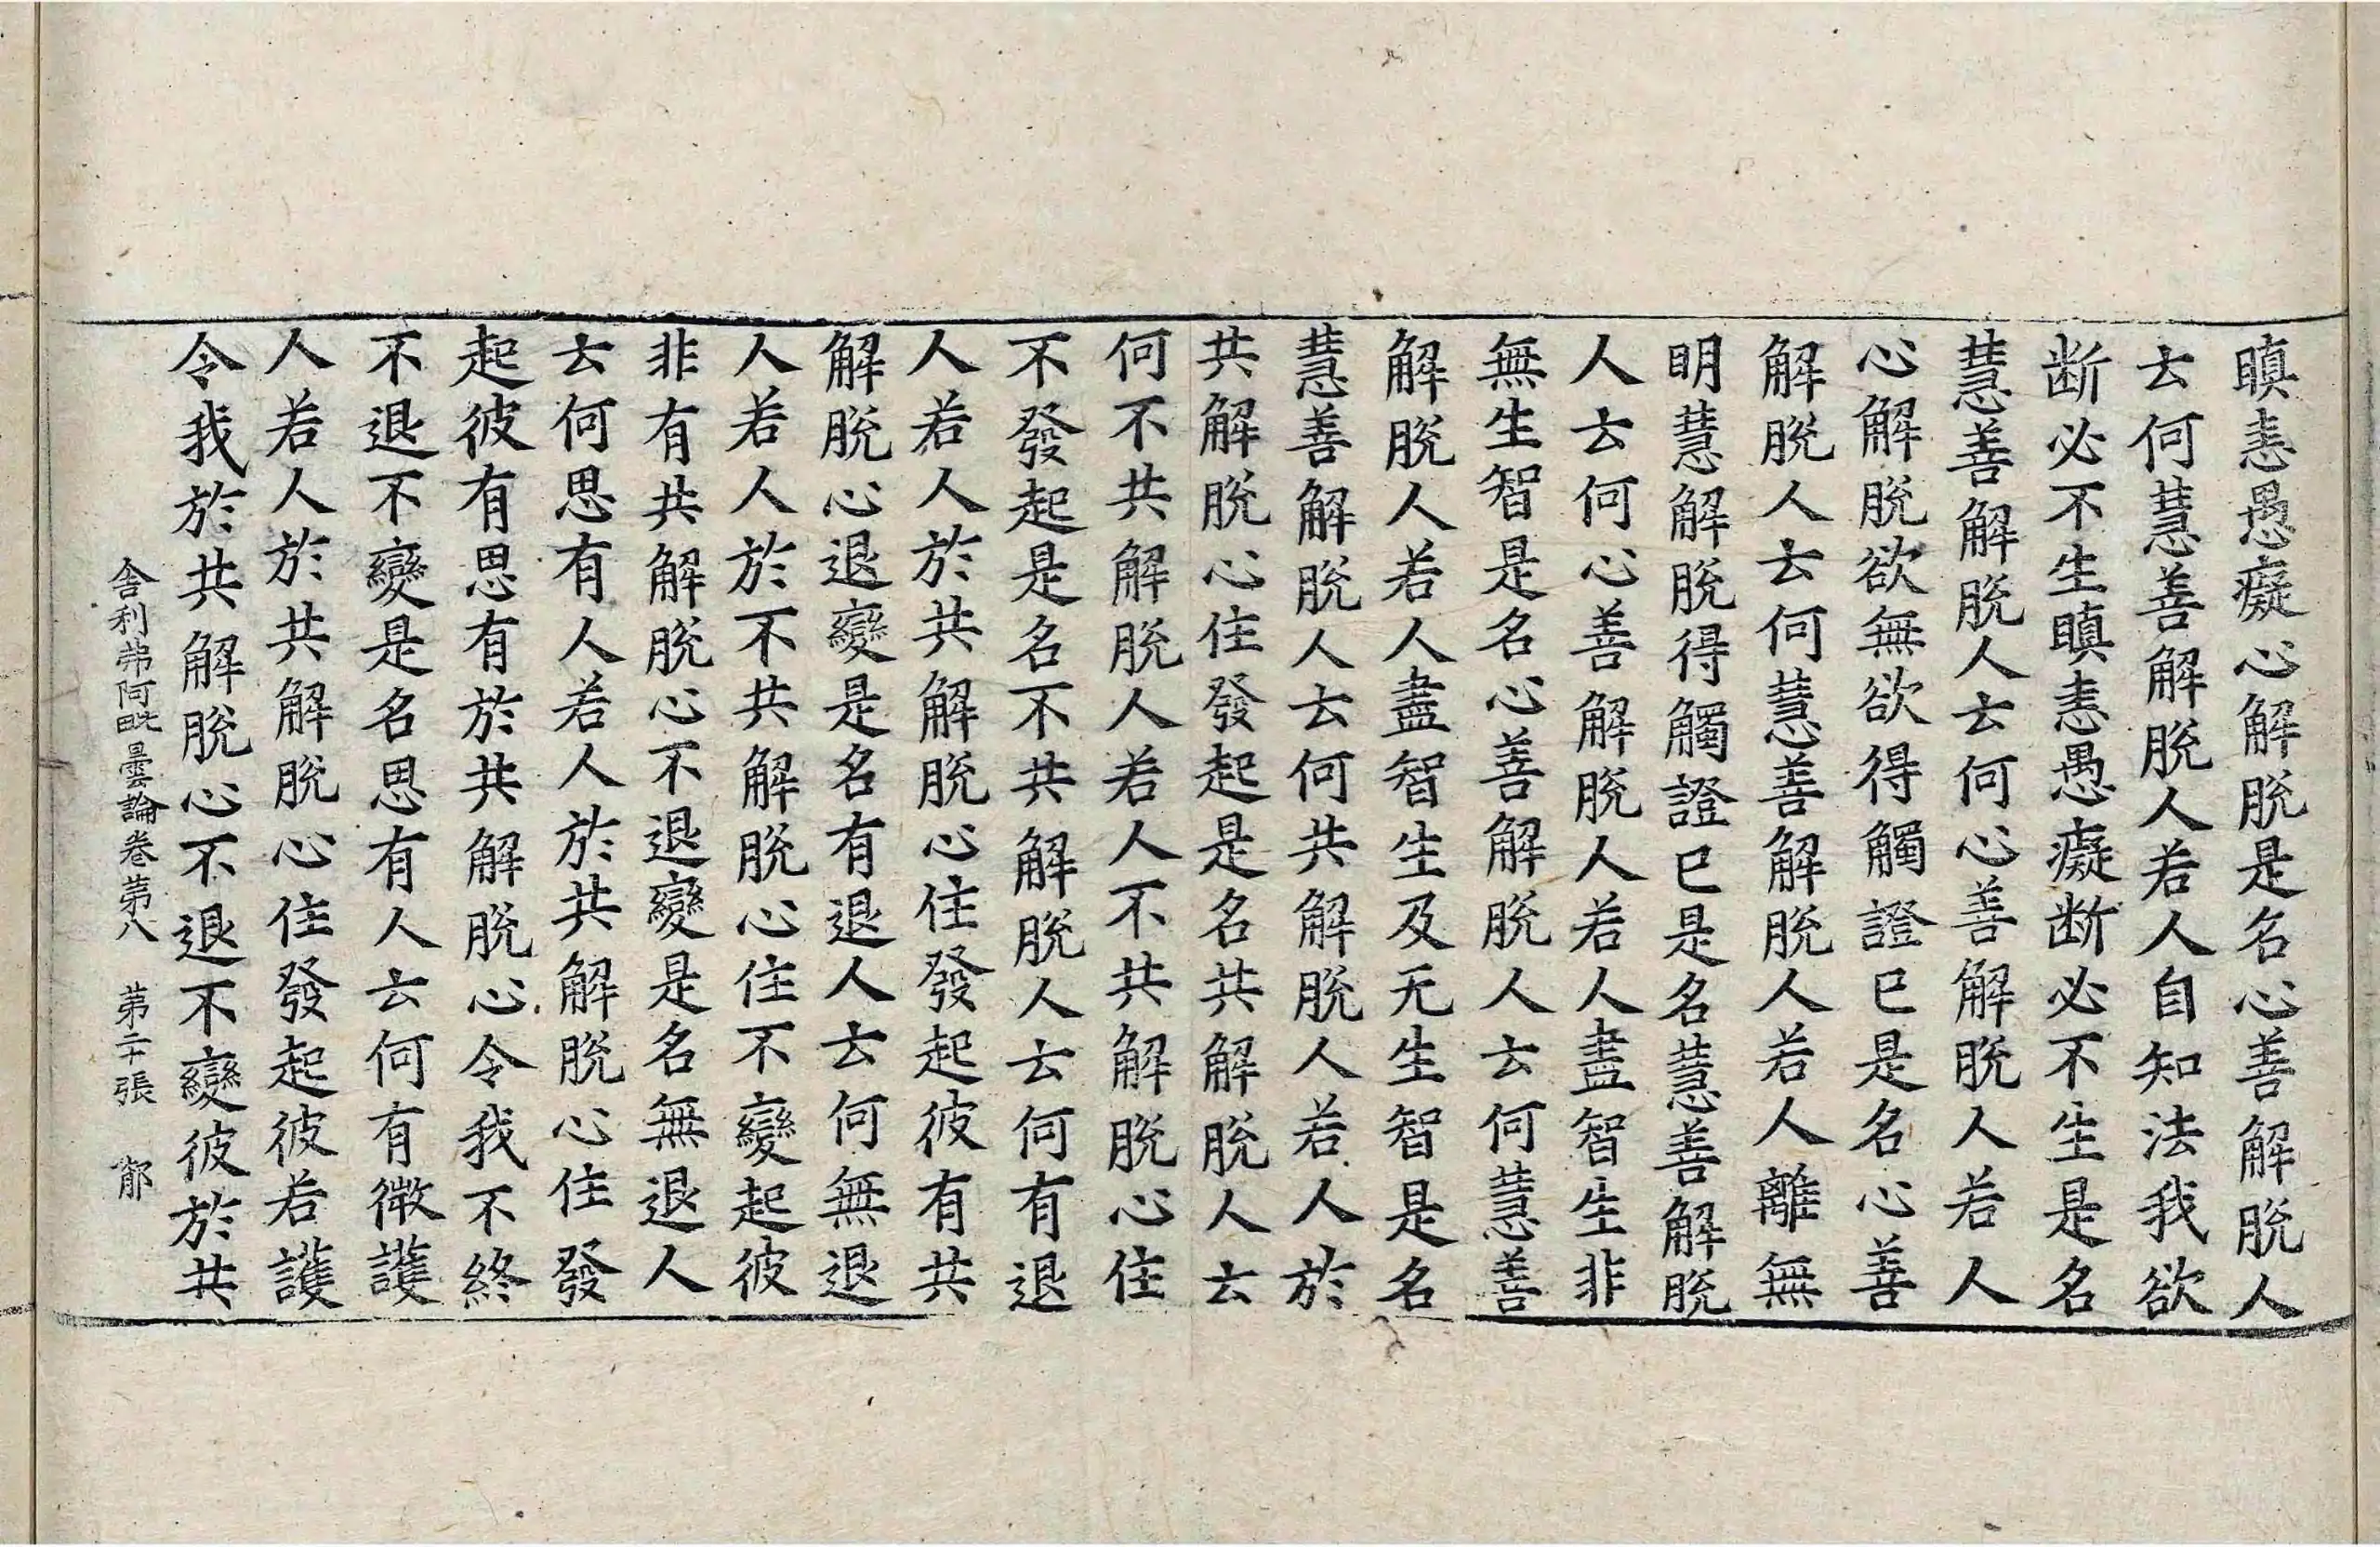 瞋恚愚癡心解脫是名心善解脫人
云何慧善解脫人若人自知法我欲
断必不生瞋恚愚癡断必不生是名
慧善解脫人云何心善解脫人若人
心解脫欲無欲得觸證已是名心善
解脫人云何慧善解脫人若人離無
明慧解脫得觸證已是名慧善解脫
人云何心善解脫人若人盡智生非
無生智是名心善解脫人云何慧善
解脫人若人盡智生及无生智是名
慧善解脫人云何共解脫人若人於
共解脫心住發起是名共解脫人云
何不共解脫人若人不共解脫心住
不發起是名不共解脫人云何有退
人若人於共解脫心住發起彼有共
解脫心退變是名有退人云何無退
人若人於不共解脫心住不變起彼
非有共解脫心不退變是名無退人
云何思有人若人於共解脫心住發
起彼有思有於共解脫心令我不終
不退不變是名思有人云何有微護
人若人於共解脫心住發起彼若護
令我於共解脫心不退不變彼於共
舍利弗阿毗曇論卷第八　第二十張　郁